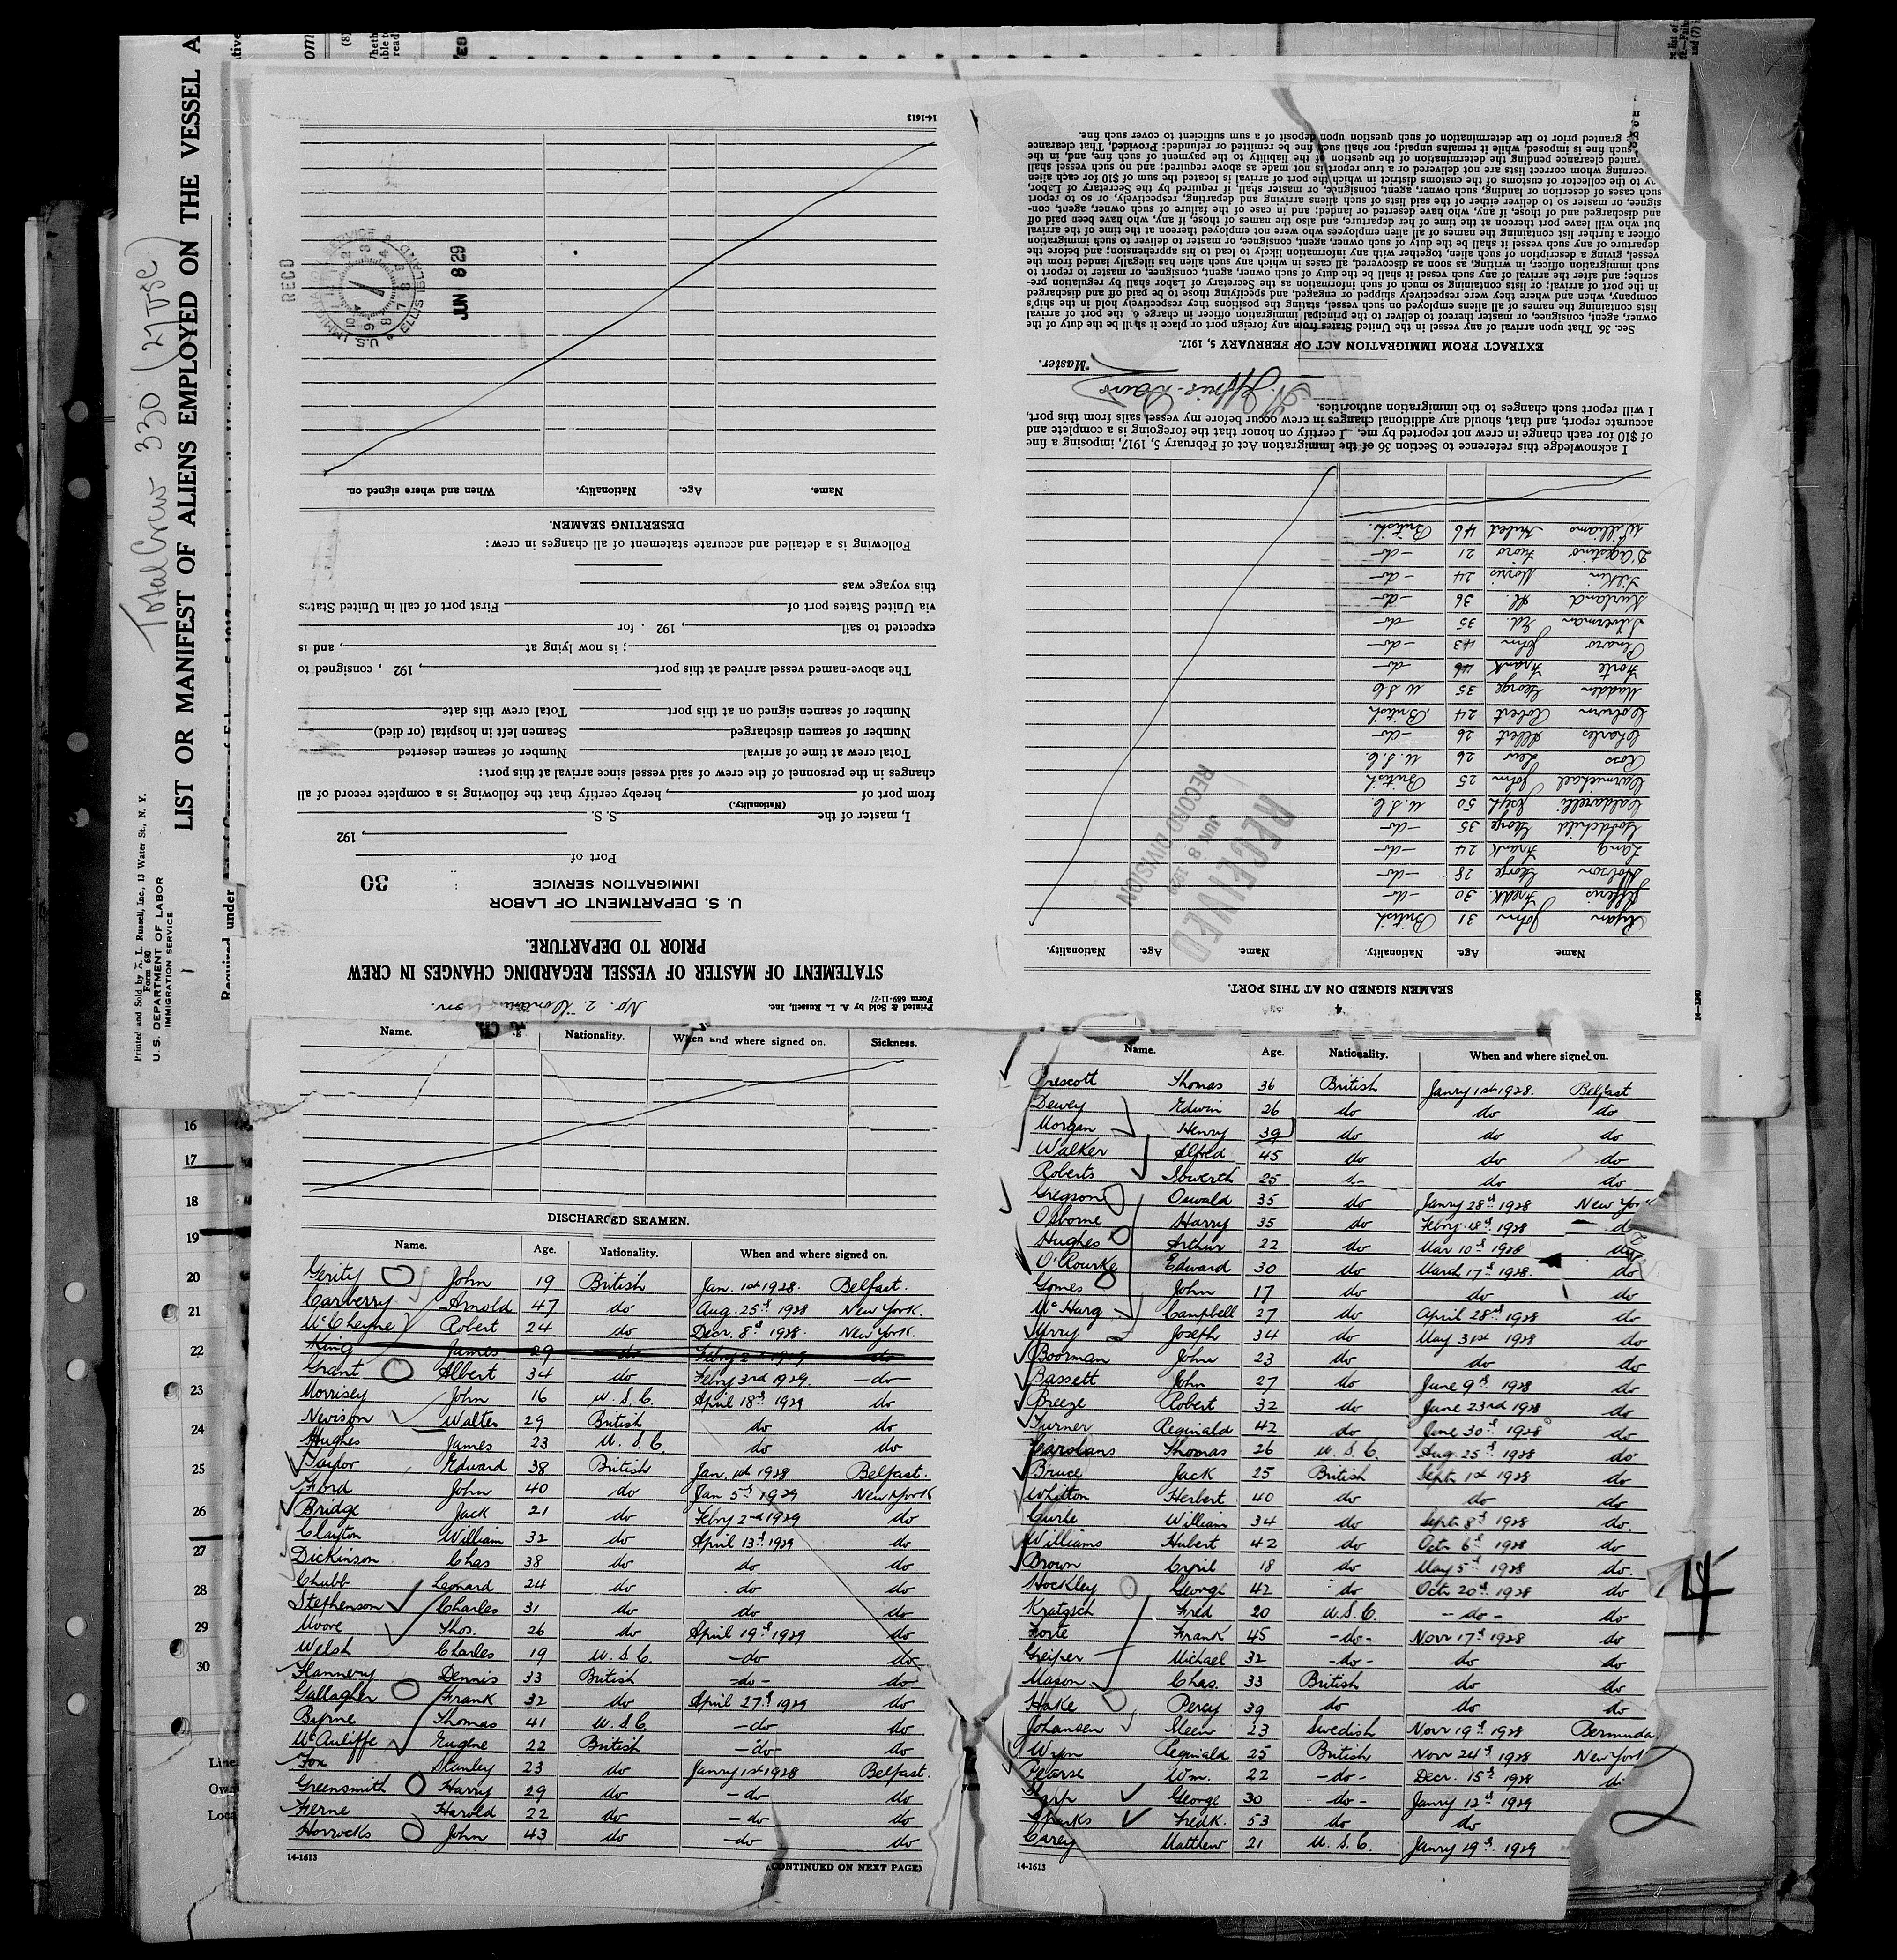 Total Crew 330 (27 USC)
LIST OR MANIFEST OF ALIENS EMPLOYED ON THE VESSEL A
Printed and Sold by A. L. Russell, Inc., 13 Water St., N. Y.
Form 680
U. S. DEPARTMENT OF LABOR
IMMIGRATION SERVICE
Required under
Printed & Sold by A. L. Russell, Inc.
Form 689-11-27
No. 2.
STATEMENT OF MASTER OF VESSEL REGARDING CHANGES IN CREW
PRIOR TO DEPARTURE.
U. S. DEPARTMENT OF LABOR
IMMIGRATION SERVICE
30
Port of
, 192
I, master of the S. S.
(Nationality.)
from port of , hereby certify that the following is a complete record of all
changes in the personnel of the crew of said vessel since arrival at this port:
Total crew at time of arrival Number of seamen deserted
Number of seamen discharged Seamen left in hospital (or died)
Number of seamen signed on at this port Total crew this date
The above-named vessel arrived at this port , 192 , consigned to
; is now lying at , and is
expected to sail , 192 . for
via United States port of First port of call in United States
this voyage was
Following is a detailed and accurate statement of all changes in crew:
DESERTING SEAMEN.
Name. Age. Nationality. When and where signed on.
14-1613
RECD
U.S. IMMIGRATION SERVICE ELLIS ISLAND
JUN 8 29
SEAMEN SIGNED ON AT THIS PORT.
Name. Age. Nationality. Name. Age. Nationality.
Ryan John 31 British
Jefferis Fredk. 30 -do-
Hobson George 28 -do-
Lang Frank 24 -do-
Goodchild George 35 -do-
Caldarelli Joseph 50 U.S.C.
Carmichael John 25 British
Ross Lew 26 U.S.C.
Charles Albert 26 -do-
Colwin Robert 24 British
Madden George 35 U S C
Forte Frank 46 do
Penaro John 43 -do-
Silverman Ed. 35 -do-
Kurland Al. 36 -do-
Filkin Morris 24 -do-
D'Agostino Fioro 21 -do-
Williams Hubert 46 British.
RECEIVED
JUN 8 1929
RECORD DIVISION
I acknowledge this reference to Section 36 of the Immigration Act of February 5, 1917, imposing a fine
of $10 for each change in crew not reported by me. I certify on honor that the foregoing is a complete and
accurate report, and that, should any additional changes in crew occur before my vessel sails from this port,
I will report such changes to the immigration authorities.
Master.
EXTRACT FROM IMMIGRATION ACT OF FEBRUARY 5, 1917.
Sec. 36. That upon arrival of any vessel in the United States from any foreign port or place it shall be the duty of the
owner, agent, consignee, or master thereof to deliver to the principal immigration officer in charge of the port of arrival
lists containing the names of all aliens employed on such vessel, stating the positions they respectively hold in the ship's
company, when and where they were respectively shipped or engaged, and specifying those to be paid off and discharged
in the port of arrival; or lists containing so much of such information as the Secretary of Labor shall by regulation pre-
scribe; and after the arrival of any such vessel it shall be the duty of such owner, agent, consignee, or master to report to
such immigration officer, in writing, as soon as discovered, all cases in which any such alien has illegally landed from the
vessel, giving a description of such alien, together with any information likely to lead to his apprehension; and before the
departure of any such vessel it shall be the duty of such owner, agent, consignee, or master to deliver to such immigration
officer a further list containing the names of all alien employees who were not employed thereon at the time of the arrival
but who will leave port thereon at the time of her departure, and also the names of those, if any, who have been paid off
and discharged and of those, if any, who have deserted or landed; and in case of the failure of such owner, agent, con-
signee, or master so to deliver either of the said lists of such aliens arriving and departing, respectively, or so to report
such cases of desertion or landing, such owner, agent, consignee, or master shall if required by the Secretary of Labor,
pay to the collector of customs of the customs district in which the port of arrival is located the sum of $10 for each alien
concerning whom correct lists are not delivered or a true report is not made as above required; and no such vessel shall
granted clearance pending the determination of the question of the liability to the payment of such fine, and, in the
such fine is imposed, while it remains unpaid; nor shall such fine be remitted or refunded: Provided, That clearance
granted prior to the determination of such question upon deposit of a sum sufficient to cover such fine.
Name. Nationality. When and where signed on. Sickness.
DISCHARGED SEAMEN.
Name. Age. Nationality. When and where signed on.
Gerity John 19 British Jan. 1st 1928. Belfast.
Carberry Arnold 47 do Aug. 25th 1928 New York.
McCheyne Robert 24 do Decr. 8th 1928. New York.
King James 29 do Febry 2nd 1929 do
Grant Albert 34 do Febry 3rd 1929. -do-
Morrisey John 16 U.S.C. April 18th 1929 do
Nevison Walter 29 British do do
Hughes James 23 U.S.C. do do
Taylor Edward 38 British Jan. 1st 1928 Belfast.
Ford John 40 do Jan 5th 1929 New York
Bridge Jack 21 do Febry 2nd 1929 do
Clayton William 32 do April 13th 1929 do
Dickinson Chas 38 do do do
Chubb Leonard 24 do do do
Stephenson Charles 31 do do do
Moore Thos. 26 do April 19th 1929 do
Welsh Charles 19 U.S.C. -do do
Flannery Dennis 33 British -do- do
Gallagher Frank 32 do April 27th 1929 do
Byrne Thomas 41 U.S.C. -do do
McAuliffe Eugene 22 British -do- do
Fox Stanley 23 do Janry 1st 1928 Belfast.
Greensmith Harry 29 do -do do
Ferne Harold 22 do -do do
Horrocks John 43 do -do do
14-1613
(CONTINUED ON NEXT PAGE)
Name. Age. Nationality. When and where signed on.
Prescott Thomas 36 British Janry 1st 1928. Belfast
Dewey Edwin 26 do do do
Morgan Henry 39 do do do
Walker Alfred 45 do do do
Roberts Iowerth 25 do do do
Gregson Oswald 35 do Janry 28th 1928 New York
Osborne Harry 35 do Febry 18th 1928 do
Hughes Arthur 22 do Mar 10th 1928 do
O'Rourke Edward 30 do March 17th 1928. do
Gomes John 17 do do do
McHarg Campbell 27 do April 28th 1928 do
Urry Joseph 34 do May 31st 1928 do
Boorman John 23 do do do
Bassett John 27 do June 9th 1928 do
Breeze Robert 32 do June 23rd 1928 do
Turner Reginald 42 do June 30th 1928 do
Carolans Thomas 26 U.S.C. Aug. 25th 1928 do
Bruce Jack 25 British Sept. 1st 1928 do
Whitton Herbert 40 do do do
Curle William 34 do Sept. 8th 1928 do.
Williams Hubert 42 do Octr 6th 1928 do
Brown Cyril 18 do May 5th 1928 do.
Hockley George 42 do Oct. 20th 1928 do
Kratzsch Fred 20 U.S.C. -do- do
Forte Frank 45 -do- Novr 17th 1928 do
Greiper Michael 32 -do- do do
Mason Chas. 33 British do do
Hake Percy 39 do do do
Johansen 23 Swedish Novr 19th 1928 Bermuda
Wynn Reginald 25 British Nov 24th 1928 New York
Pearse Wm. 22 -do- Decr. 15th 1928
George 30 -do- Janry 12th 1929
Sparks Fredk. 53 do do
Carey Matthew 21 U.S.C. Janry 19th 1929
14-1613
14
2
16
17
18
19
20
21
22
23
24
25
26
27
28
29
30
Line
Own
Loca